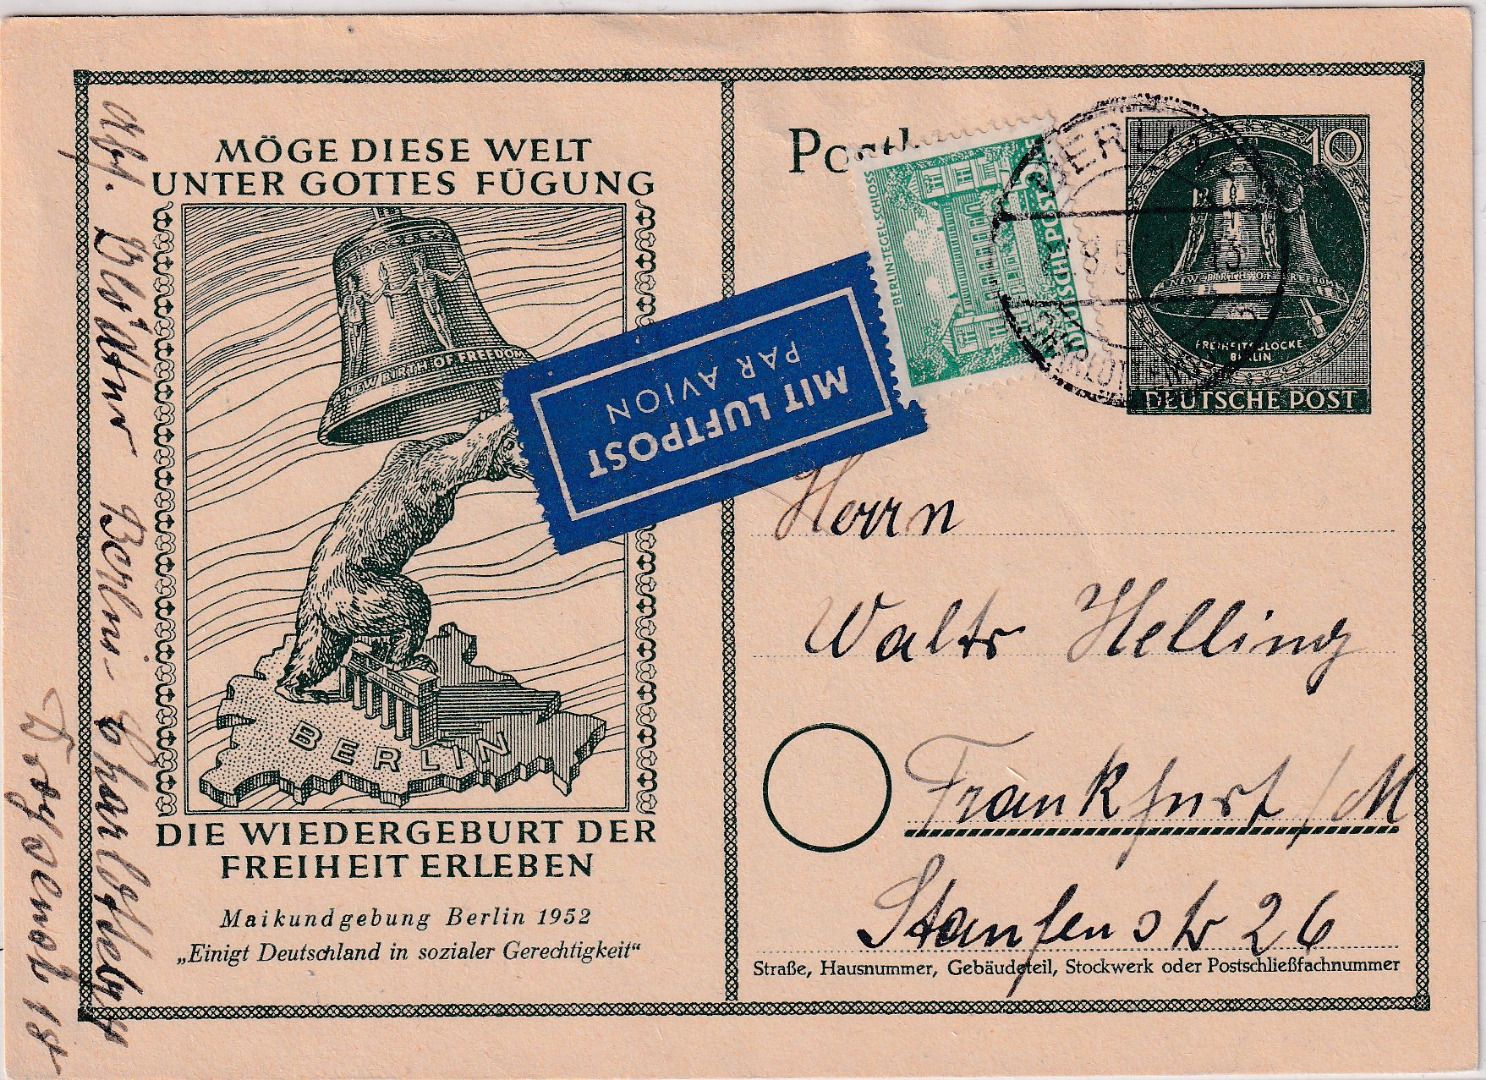 MÖGE DIESE WELT
UNTER GOTTES FÜGUNG
NEW BIRTH OF FREEDOM
BERLIN
DIE WIEDERGEBURT DER
FREIHEIT ERLEBEN
Maikundgebung Berlin 1952
„Einigt Deutschland in sozialer Gerechtigkeit“
MIT LUFTPOST
PAR AVION
BERLIN-TEGEL SCHLOSS
DEUTSCHE POST
BERLIN
CHARLOTTENBURG
10
FREIHEITSGLOCKE
BERLIN
DEUTSCHE POST
Herrn
Walter Helling
Frankfurt/M
Staufenstr 26
Straße, Hausnummer, Gebäudeteil, Stockwerk oder Postschließfachnummer
Abs.
Berlin-Charlottenbg
18